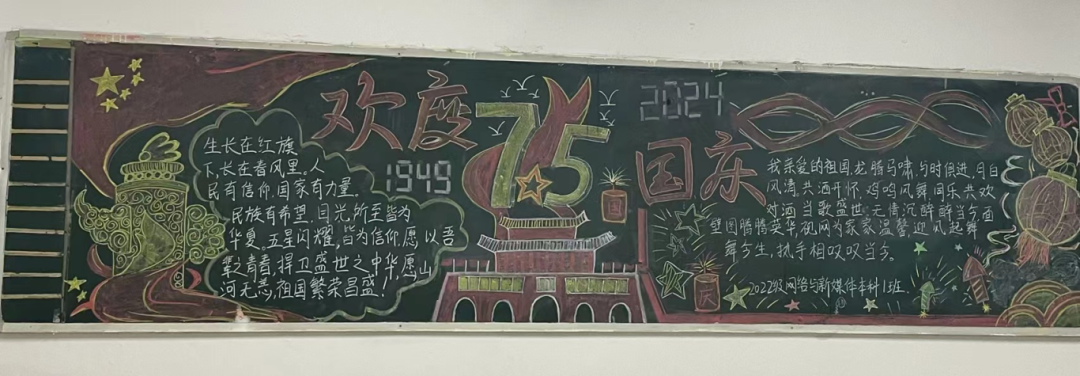 欢度
75
国庆
1949
2024
生长在红旗
下,长在春风里。人
民有信仰,国家有力量.
民族有希望.目光所至皆为
华夏。五星闪耀,皆为信仰,愿以吾
辈之青春,捍卫盛世之中华,愿山
河无恙,祖国繁荣昌盛!
国
庆
我亲爱的祖国,龙腾马啸,与时俱进,月白
风清,共洒开怀,鸡鸣风舞,同乐共欢
对酒当歌盛世,无情沉醉醉当
图腾腾英华,视网为家家温馨,迎风起舞
舞今生,执手相叹叹当今.
2022级网络与新媒体本科1班.